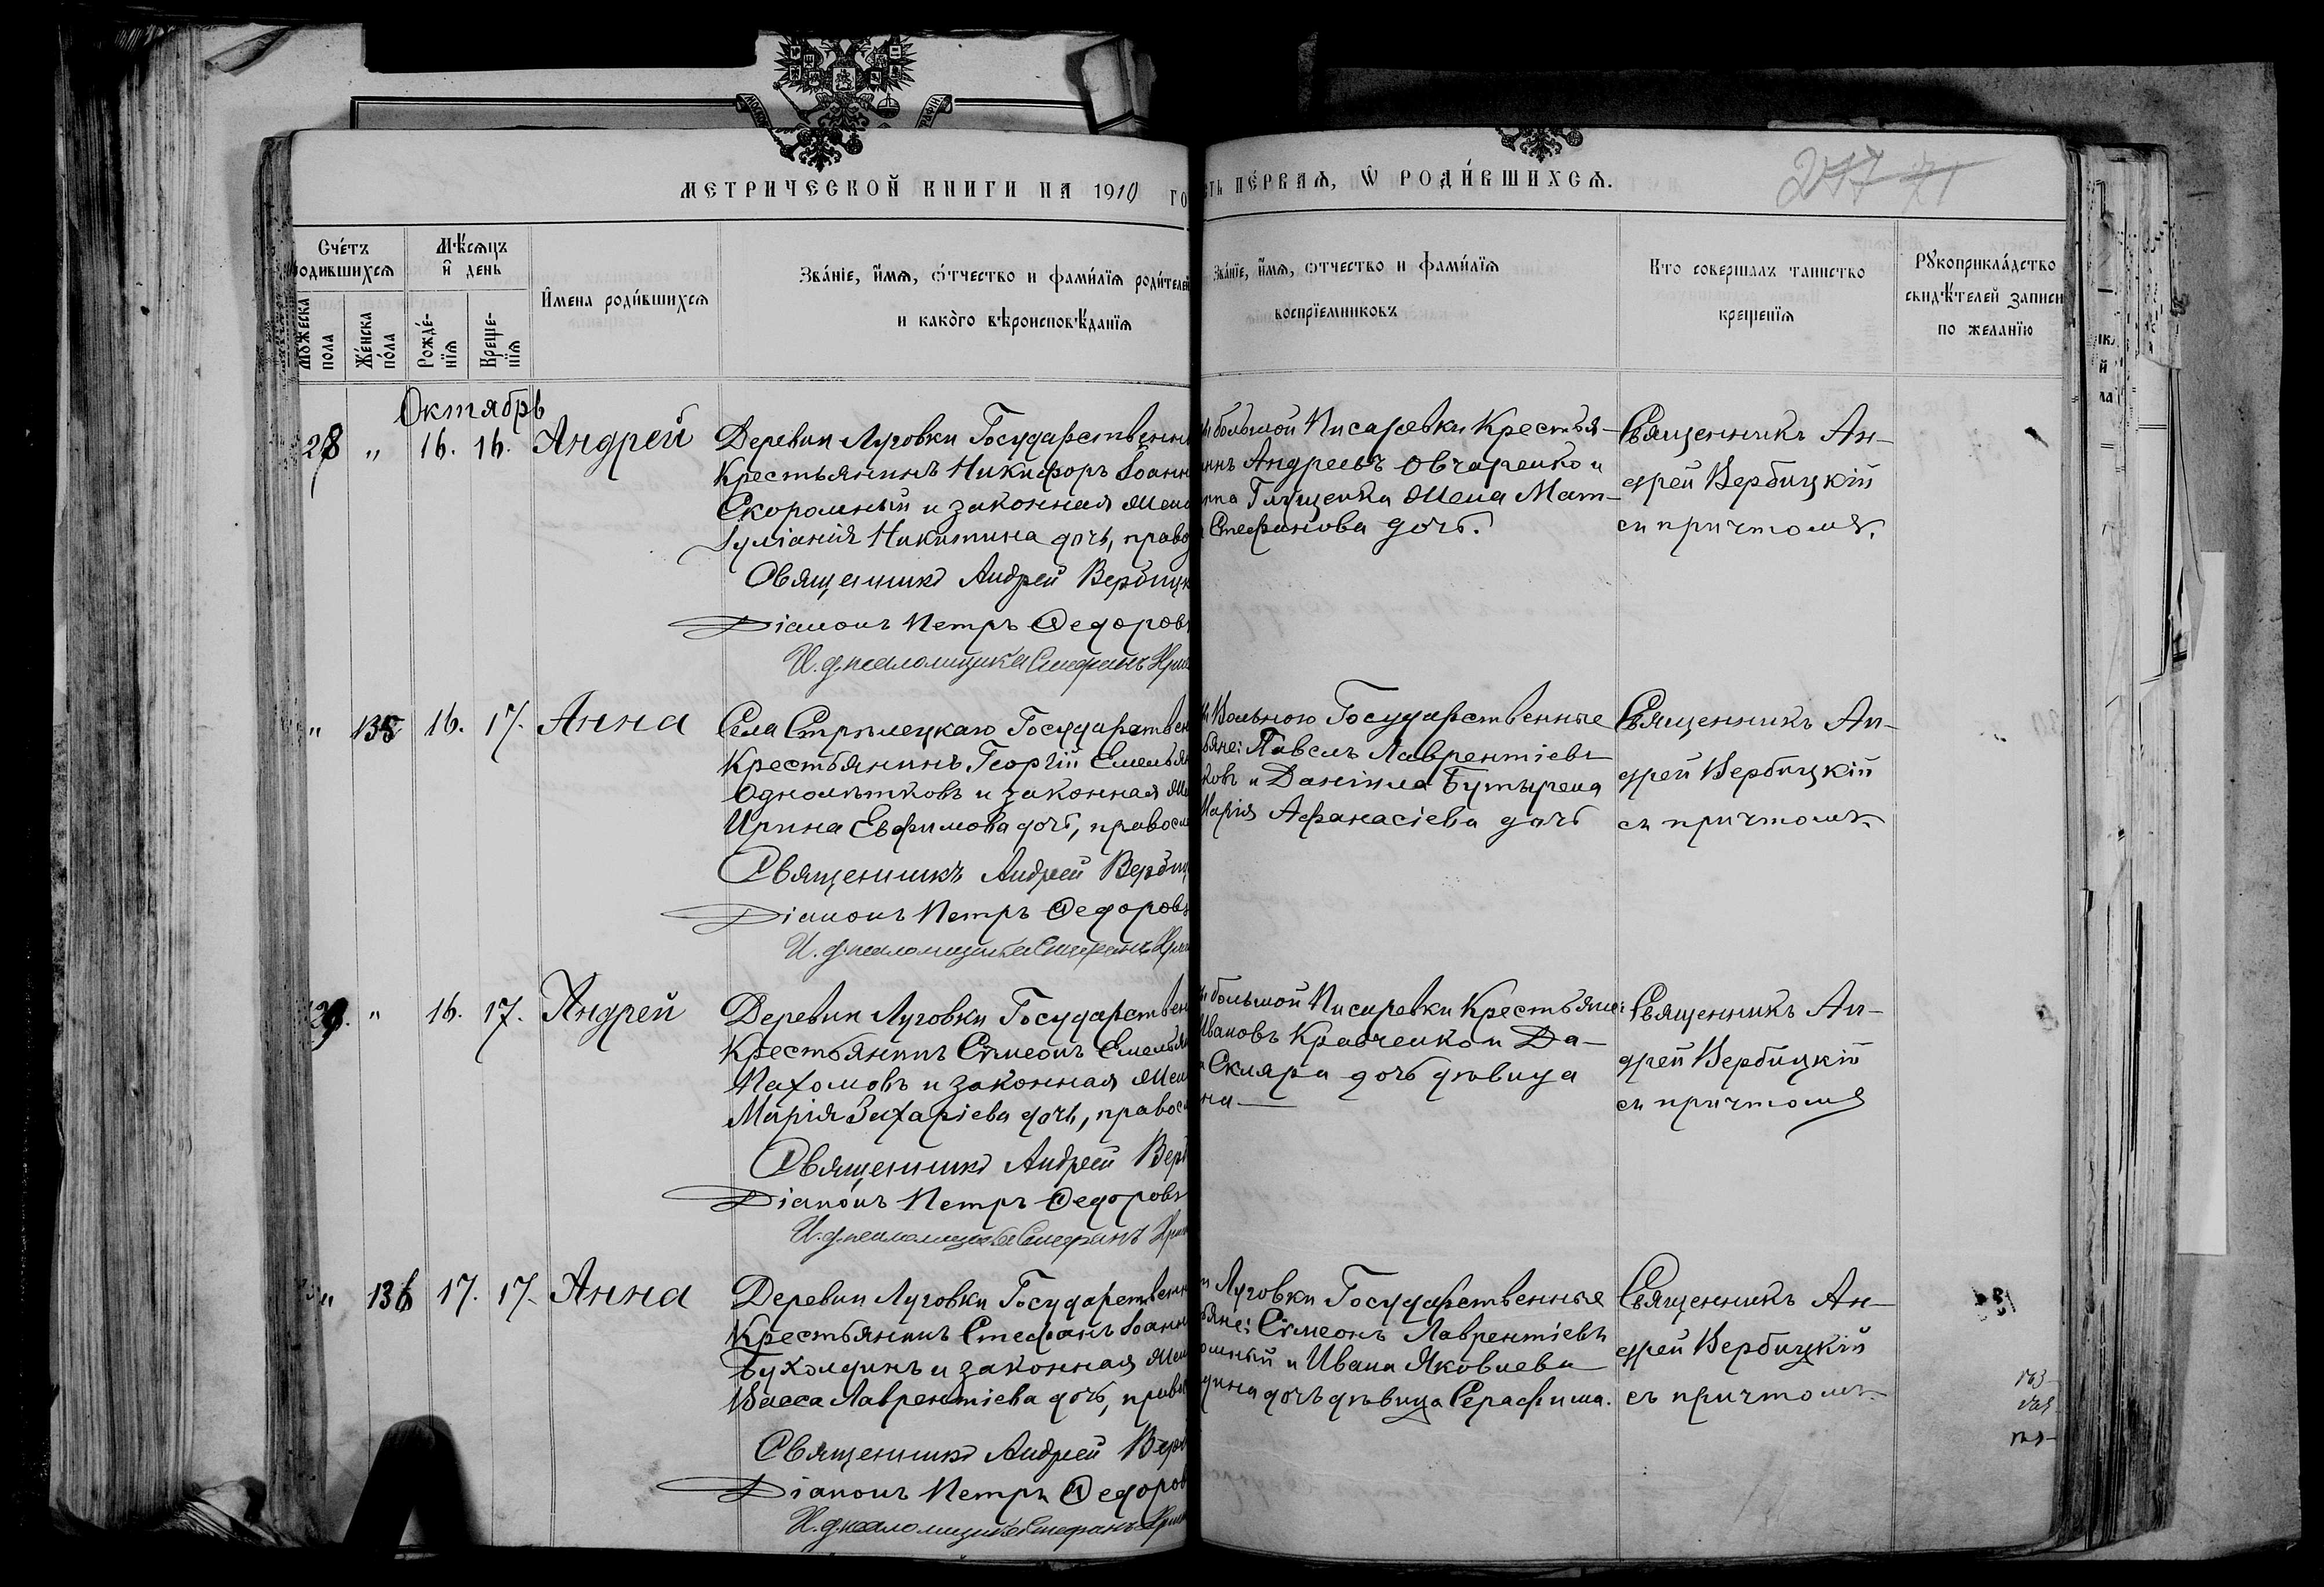 МЕТРИЧЕСКОЙ КНИГИ НА 1910 ГО
СТЬ ПЕ́РВАѦ, Ѡ РОДИ́ВШИХСѦ.
217 71
Счéтъ родившихсѧ
Мѣ́сѧцъ и҆ день
Мꙋжеска пола
Же́нска по́ла
Рожде́нїѧ
Креще́нїѧ
И҆мена роди́вшихсѧ
Зва́нїе, и҆́мѧ, ѻ҆́тчество и фами́лїѧ роди́телей
и како́го вѣроисповѣ́данїѧ
Зва́нїе, и҆́мѧ, ѻ҆тчество и фами́лїѧ
воспрїемниковъ
Кто совершалъ таинство
крещенїѧ
Рꙋкоприкла́дство
свидѣ́телей записи
по желанїю
Октябрь
28 " 16. 16. Андрей
Деревни Луговки Государственн
Крестьянинъ Никифоръ Іоанн
Скоромный и законная жена
Іуліанія Никитина дочь, правос
Священникъ Андрей Вербицк
Діаконъ Петръ Федоровъ
И. д. псаломщика Стефанъ
большой Писаревки Крестья-
инъ Андреевъ Овчаренко и
Глущенка жена Мат-
Стефанова дочь.
Священникъ Ан-
дрей Вербицкій
съ причтомъ.
" 135 16. 17. Анна
Села Стрѣлецкаго Государствен
Крестьянинъ Георгій Емелья
Однолѣтковъ и законная же
Ирина Евфимова дочь, правосл
Священникъ Андрей Вербиц
Діаконъ Петръ Федоровъ
И. д. псаломщика Стефанъ
Вольного Государственные
ьяне: Павелъ Лаврентіевъ
ковъ и Даніила Бутырева
Марія Афанасіева дочь
Священникъ Ан-
дрей Вербицкій
съ причтомъ.
129. " 16. 17. Андрей
Деревни Луговки Государствен
Крестьянинъ Сѵмеонъ Емелья
Пахомовъ и законная жен
Марія Захаріева дочь, правос
Священникъ Андрей Верб
Діаконъ Петръ Федоровъ
И. д. псаломщика Стефанъ
большой Писаревки Крестьяне:
Ивановъ Кравченко и Да-
Скляра дочь дѣвица
на
Священникъ Ан-
дрей Вербицкій
съ причтомъ
" 136 17. 17. Анна
Деревни Луговки Государственн
Крестьянинъ Стефанъ Іоанн
Бухолдинъ и законная жен
Васса Лаврентіева дочь, право
Священникъ Андрей Верб
Діаконъ Петръ Федоров
И. д. псаломщика Стефанъ
Луговки Государственные
ьяне: Сѵмеонъ Лаврентіевъ
омный и Ивана Яковлева
дина дочь дѣвица Серафима.
Священникъ Ан-
дрей Вербицкій
съ причтомъ.